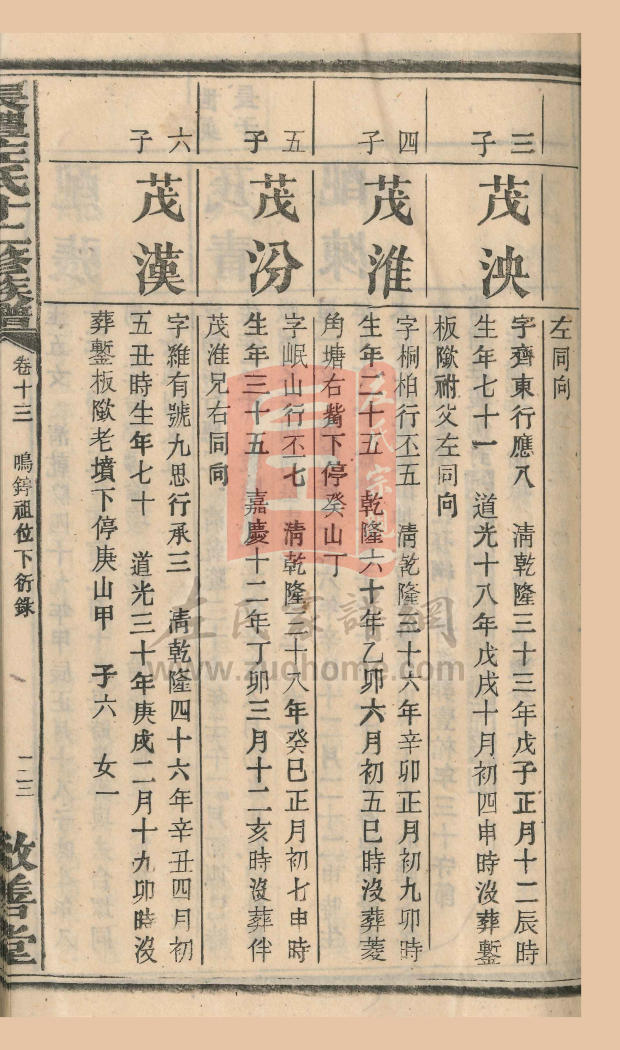 左同向
三子
茂泱
字齊東行應八　清乾隆三十三年戊子正月十二辰時
生年七十一　道光十八年戊戌十月初四申時沒葬鏨
板歘祔父左同向
四子
茂淮
字桐柏行丕五　清乾隆三十六年辛卯正月初九卯時
生年二十五　乾隆六十年乙卯六月初五巳時沒葬菱
角塘右觜下停癸山丁
五子
茂汾
字岷山行丕七　清乾隆三十八年癸巳正月初七申時
生年三十五　嘉慶十二年丁卯三月十二亥時沒葬伴
茂淮兄右同向
六子
茂漢
字維有號九思行承三　清乾隆四十六年辛丑四月初
五丑時生年七十　道光三十年庚戌二月十九卯時沒
葬鏨板歘老墳下停庚山甲　子六　女一
左氏十二修族譜
卷十三　鳴鐸祖位下衍錄
一二三
敘善堂
左氏宗親
左氏家譜網
www.zuohome.com